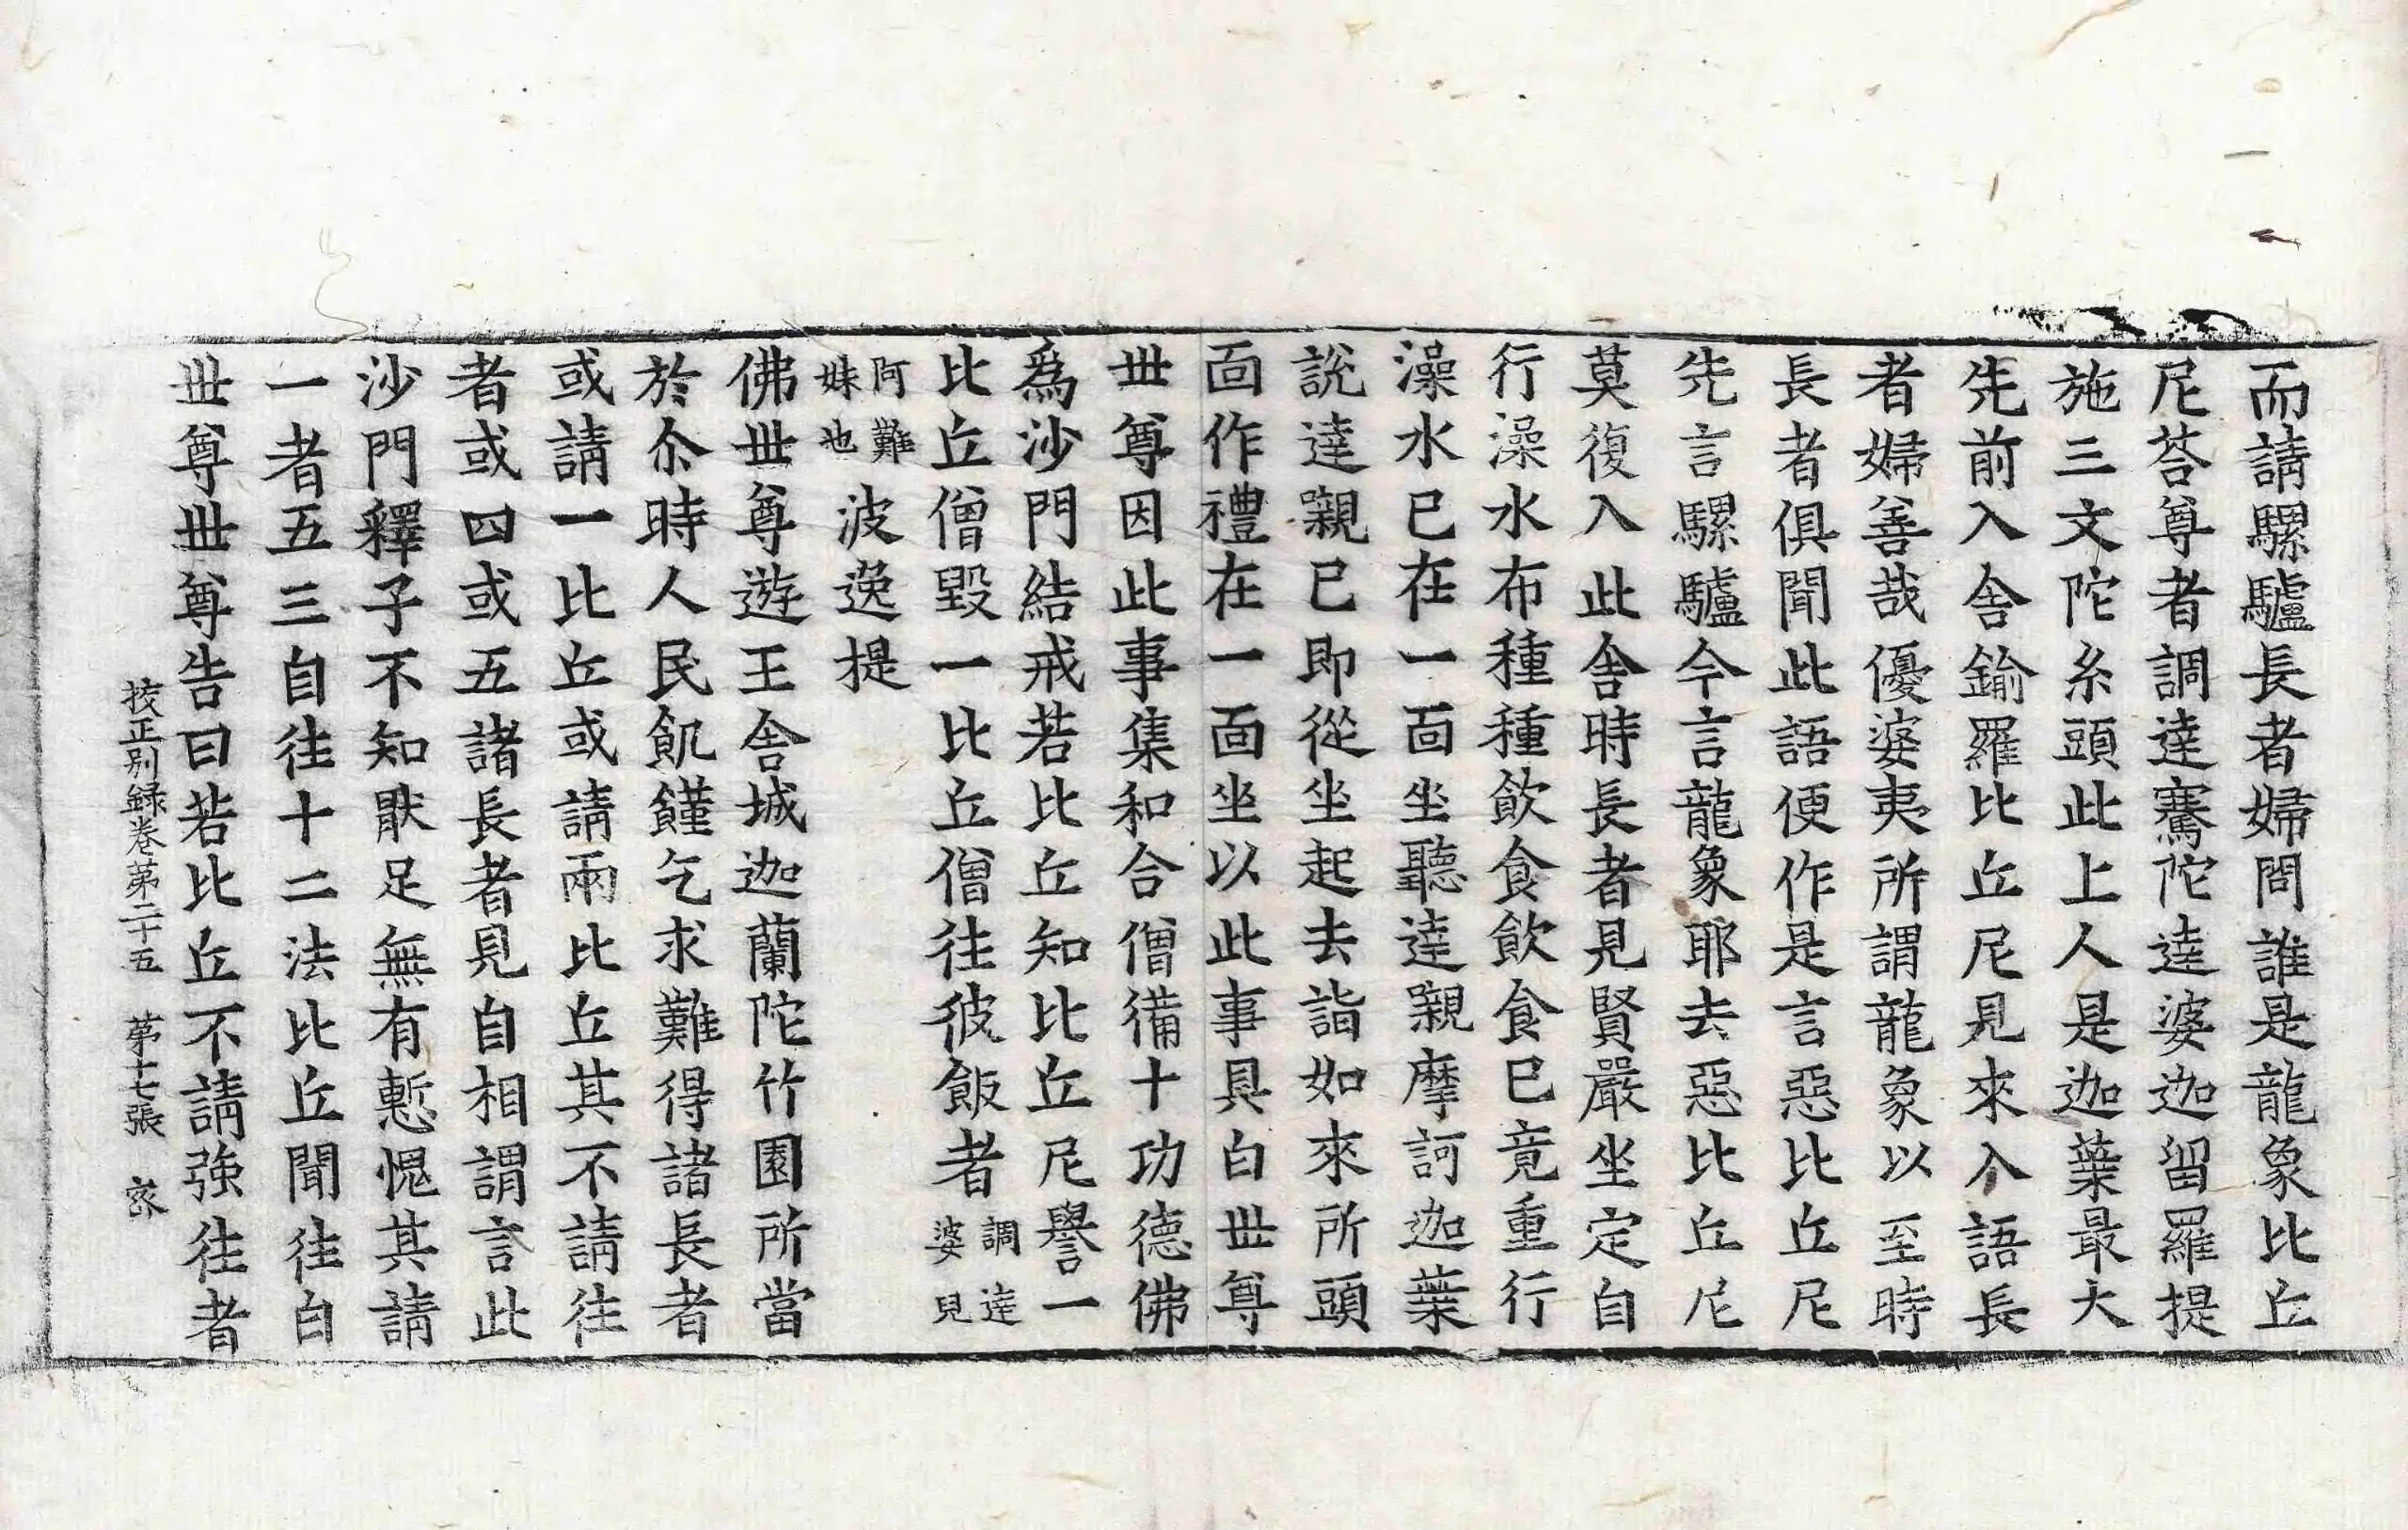 而請騾驢長者婦問誰是龍象比丘
尼荅尊者調達騫陀達婆迦留羅提
施三文陀糸頭此上人是迦葉最大
先前入舎鍮羅比丘尼見來入語長
者婦善哉優婆夷所謂龍象以至時
長者俱聞此語便作是言惡比丘尼
先言騾驢今言龍象耶去惡比丘尼
莫復入此舎時長者見賢嚴坐定自
行澡水布種種飲食飲食已竟重行
澡水已在一面坐聽達嚫摩訶迦葉
說達嚫已即從坐起去詣如來所頭
面作禮在一面坐以此事具白世尊
世尊因此事集和合僧備十功德佛
爲沙門結戒若比丘知比丘尼譽一
比丘僧毀一比丘僧往彼飯者調達婆兒
阿難妹也波逸提
佛世尊遊王舎城迦蘭陀竹園所當
於尒時人民飢饉乞求難得諸長者
或請一比丘或請兩比丘其不請往
者或四或五諸長者見自相謂言此
沙門釋子不知猒足無有慙愧其請
一者五三自往十二法比丘聞往白
世尊世尊告曰若比丘不請強往者
挍正別録卷第二十五　第十七張　密